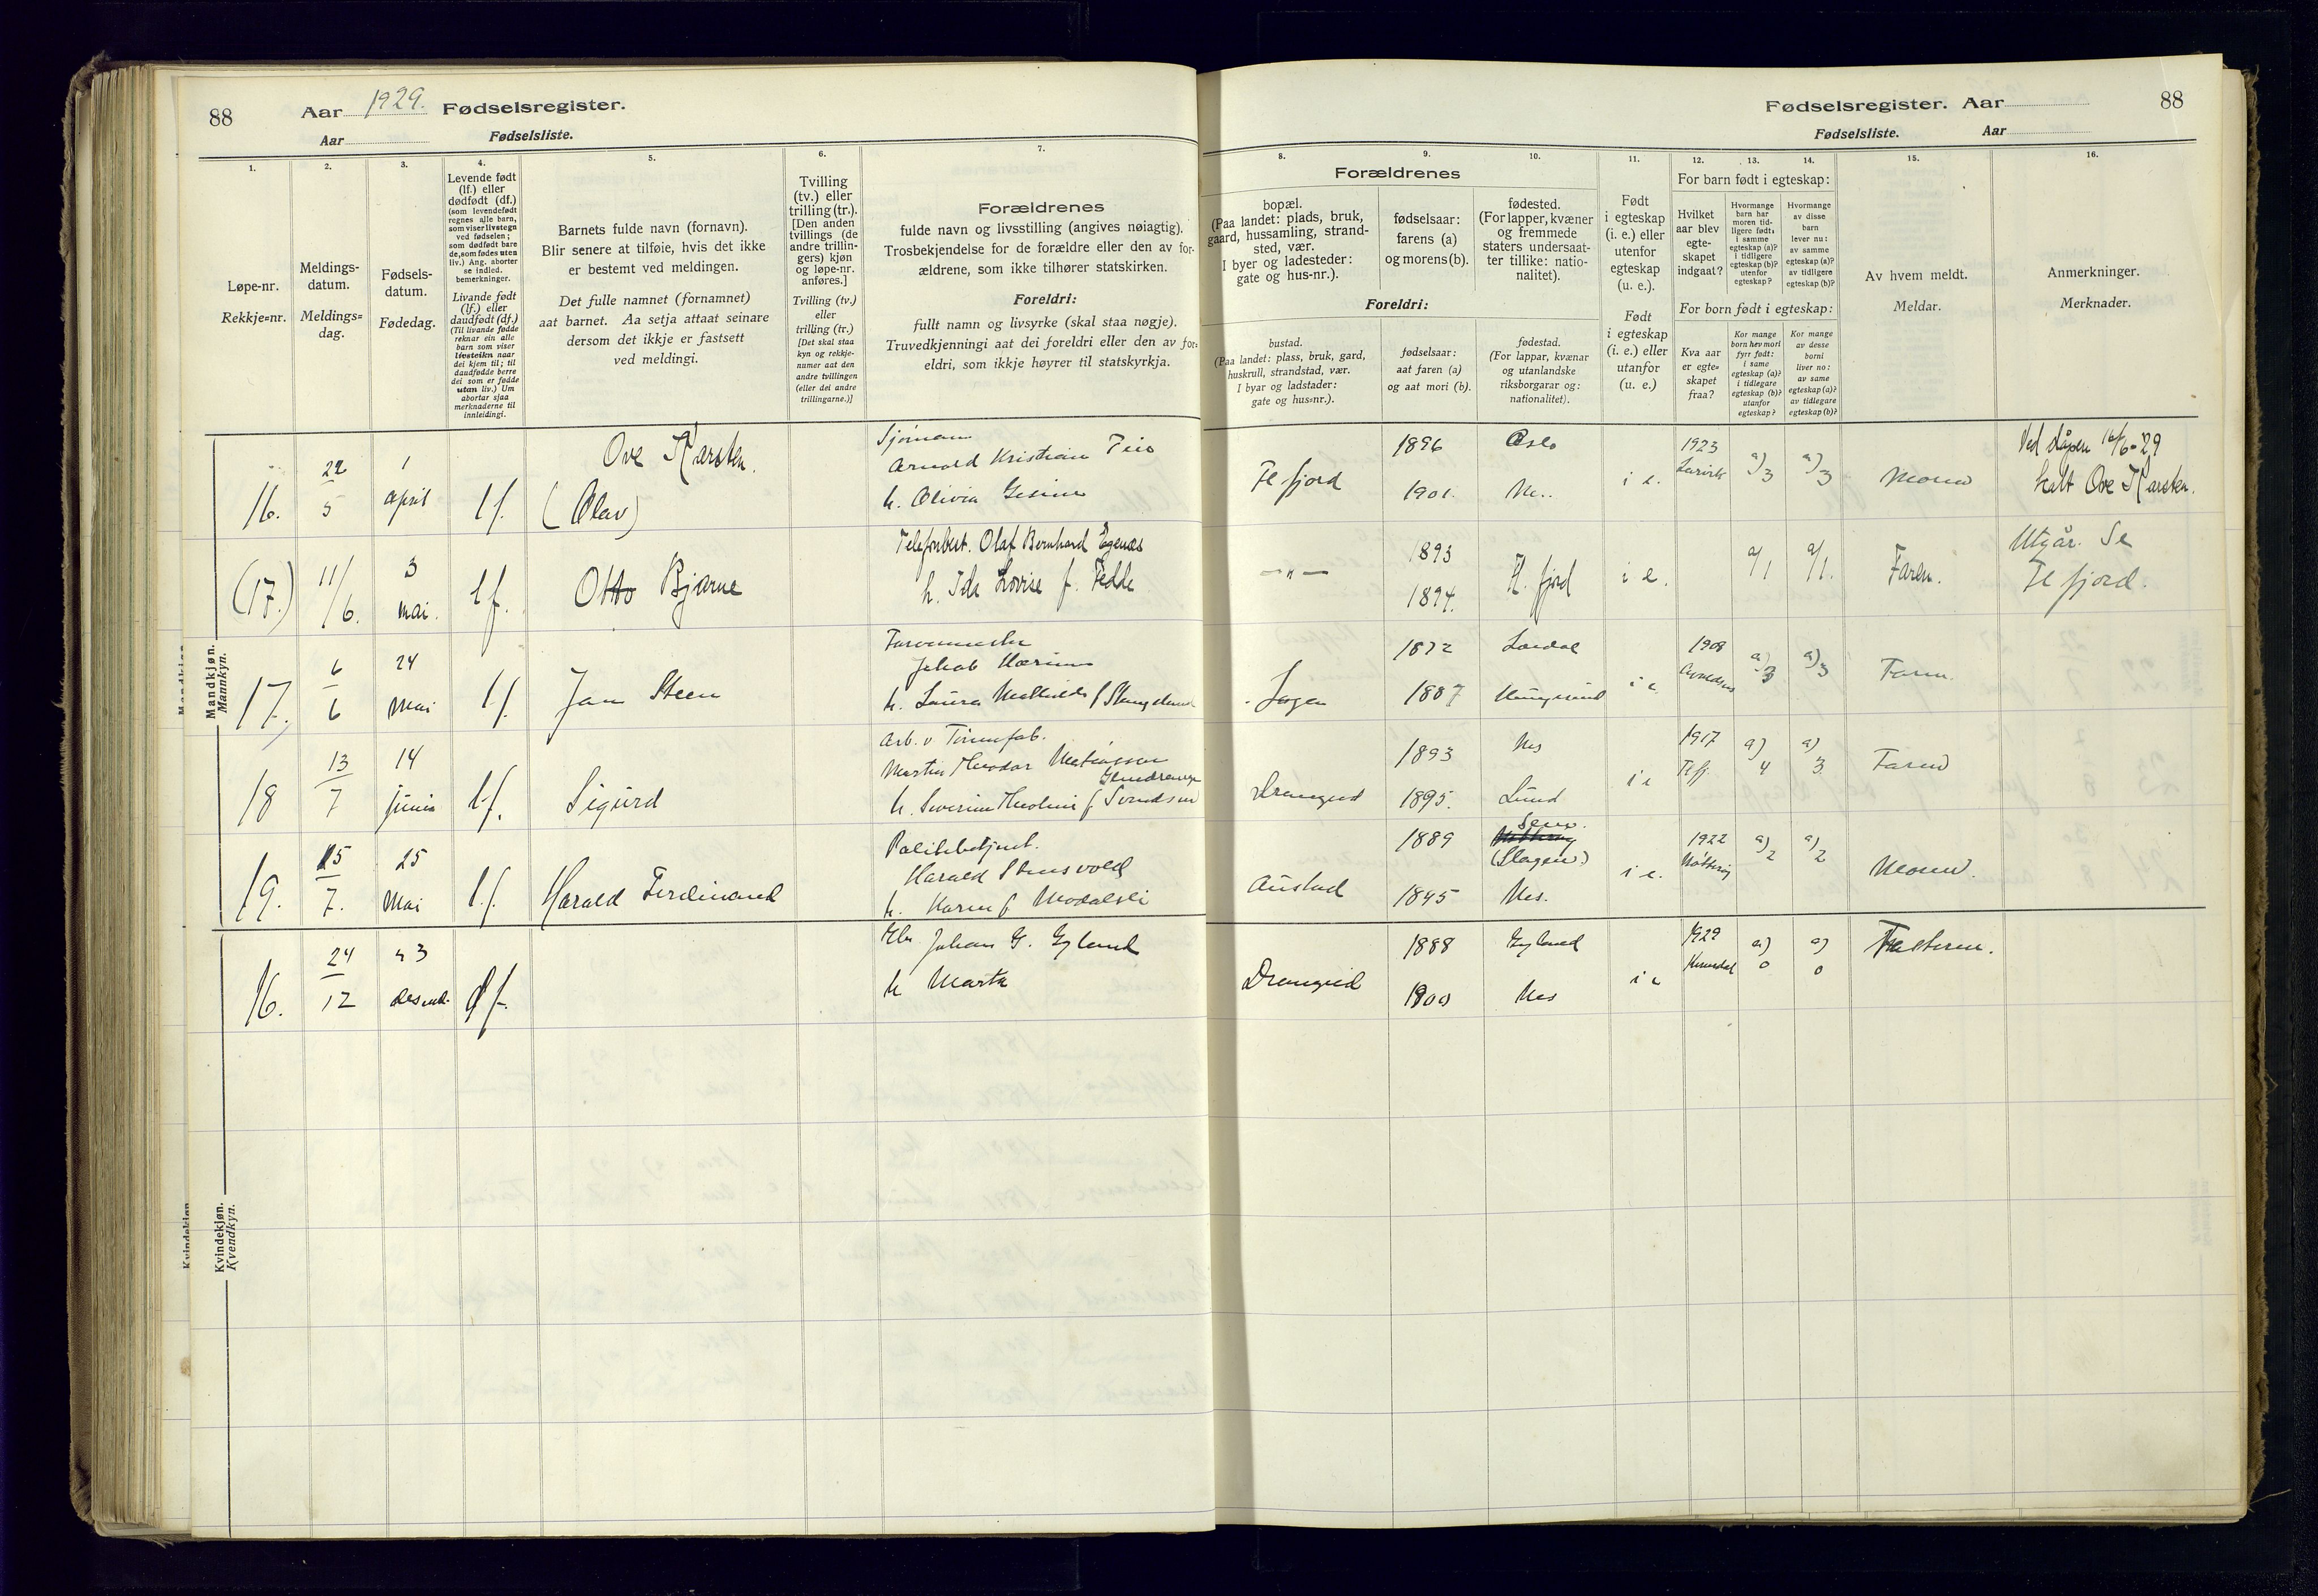 88
Aar 1929. Fødselsregister.
Aar Fødselsliste.
Fødselsregister. Aar
88
Fødselsliste. Aar
1.
Løpe-nr.
Rekkje=nr.
2.
Meldings-
datum.
Meldings=
dag.
3.
Fødsels-
datum.
Fødedag.
4.
Levende født
(lf.) eller
dødfødt (df.)
(som levendefødt
regnes alle barn,
som viser livstegn
ved fødselen;
som dødfødt bare
de, som fødes uten
liv.) Ang. aborter
se indled.
bemerkninger.
Livande født
(lf.) eller
daudfødt (df.)
(Til livande fødde
reknar ein alle
barn som viser
livsteikn naar
dei kjem til; til
daudfødde berre
dei som er fødde
utan liv.) Um
abortar sjaa
merknaderne til
innleidingi.
5.
Barnets fulde navn (fornavn).
Blir senere at tilføie, hvis det ikke
er bestemt ved meldingen.
Det fulle namnet (fornamnet)
aat barnet. Aa setja attaat seinare
dersom det ikkje er fastsett
ved meldingi.
6.
Tvilling
(tv.) eller
trilling (tr.).
[Den anden
tvillings (de
andre trillin-
gers) kjøn
og løpe-nr.
anføres.]
Tvilling (tv.)
eller
trilling (tr.)
[Det skal staa
kyn og rekkje-
numer aat den
andre tvillingen
(eller dei andre
trillingarne.)]
7.
Forældrenes
fulde navn og livsstilling (angives nøiagtig).
Trosbekjendelse for de forældre eller den av for-
ældrene, som ikke tilhører statskirken.
Foreldri:
fullt namn og livsyrke (skal staa nøgje).
Truvedkjenningi aat dei foreldri eller den av for-
eldri, som ikkje høyrer til statskyrkja.
Forældrenes
8.
bopæl.
(Paa landet: plads, bruk,
gaard, hussamling, strand-
sted, vær.
I byer og ladesteder:
gate og hus-nr.).
Foreldri:
bustad.
(Paa landet: plass, bruk, gard,
huskrull, strandstad, vær.
I byar og ladstader:
gate og hus=nr.).
9.
fødselsaar:
farens (a)
og morens (b).
fødselsaar:
aat faren (a)
og aat mori (b).
10.
fødested.
(For lapper, kvæner
og fremmede
staters undersaat-
ter tillike: natio-
nalitet).
fødestad.
(For lappar, kvænar
og utanlandske
riksborgarar og:
nationalitet).
11.
Født
i egteskap
(i. e.) eller
utenfor
egteskap
(u. e.).
Født
i egteskap
(i. e.) eller
utanfor
(u. e.)
12. 13. 14.
For barn født i egteskap:
Hvilket
aar blev
egte-
skapet
indgaat?
Hvormange
barn har
moren tid-
ligere født:
i samme
egteskap (a)?
i tidligere
egteskap (b)?
utenfor
egteskap?
Hvormange
av disse
barn
lever nu:
av samme
egteskap (a)?
av tidligere
egteskap (b)?
For born født i egteskap:
Kva aar
er egte=
skapet
fraa?
Kor mange
born hev mori
fyrr født:
i same
egteskap (a)?
i tidlegare
egteskap (b)?
utanfor
egteskap?
Kor mange
av desse
borni
liver no:
av same
egteskap (a)?
av tidlegare
egteskap (b)?
15.
Av hvem meldt.
Meldar.
16.
Anmerkninger.
Merknader.
Mandkjøn.
Mannkyn.
16. 22/5 1 april lf. Ove Karsten.
(Olav)
Sjømann
Arnold Kristian
h. Olivia Gesine
Flefjord 1896 Oslo
1901. i e. 1923 Larvik a) 3 a) 3
Ved dåpen 16/6-29
kalt Ove Karsten.
(17.) 11/6. 3 mai. lf. Otto Bjarne
Telefonbest. Olaf Bernhard Egenæs
h. Ida Lovise f. Fedde
— " — 1893
1894. Fl. fjord i e. a/1 a/1. Faren. Utgår. Se
Flefjord.
17. 6/6 24 mai lf. Jan Steen
Jakob
h. Laura
1872
1887 i e 1908 a) 3 a) 3 Faren.
18 13/7 14 juni lf. Sigurd
Arb. v
Martin Theodor
h. Severine f Svendsen
Drangeid 1893 Nes
1895. Lund i e 1917 Flfj. a) 4 a) 3 Faren
19. 15/7. 25 Mai lf. Harald Ferdinand
Politibetjent.
Harald Stensvold
h. Karen f.
Austad 1889 Sem.
(Slagen)
1895 Nes. i e. 1922 a) 2 a) 2
Kvindekjøn.
Kvendkyn.
16. 24/12 23 desemb. df.
Johan G. Gyland
h Marta
Drangeid 1888 Gyland
1900 Nes i e 1929 a) 0 a) 0